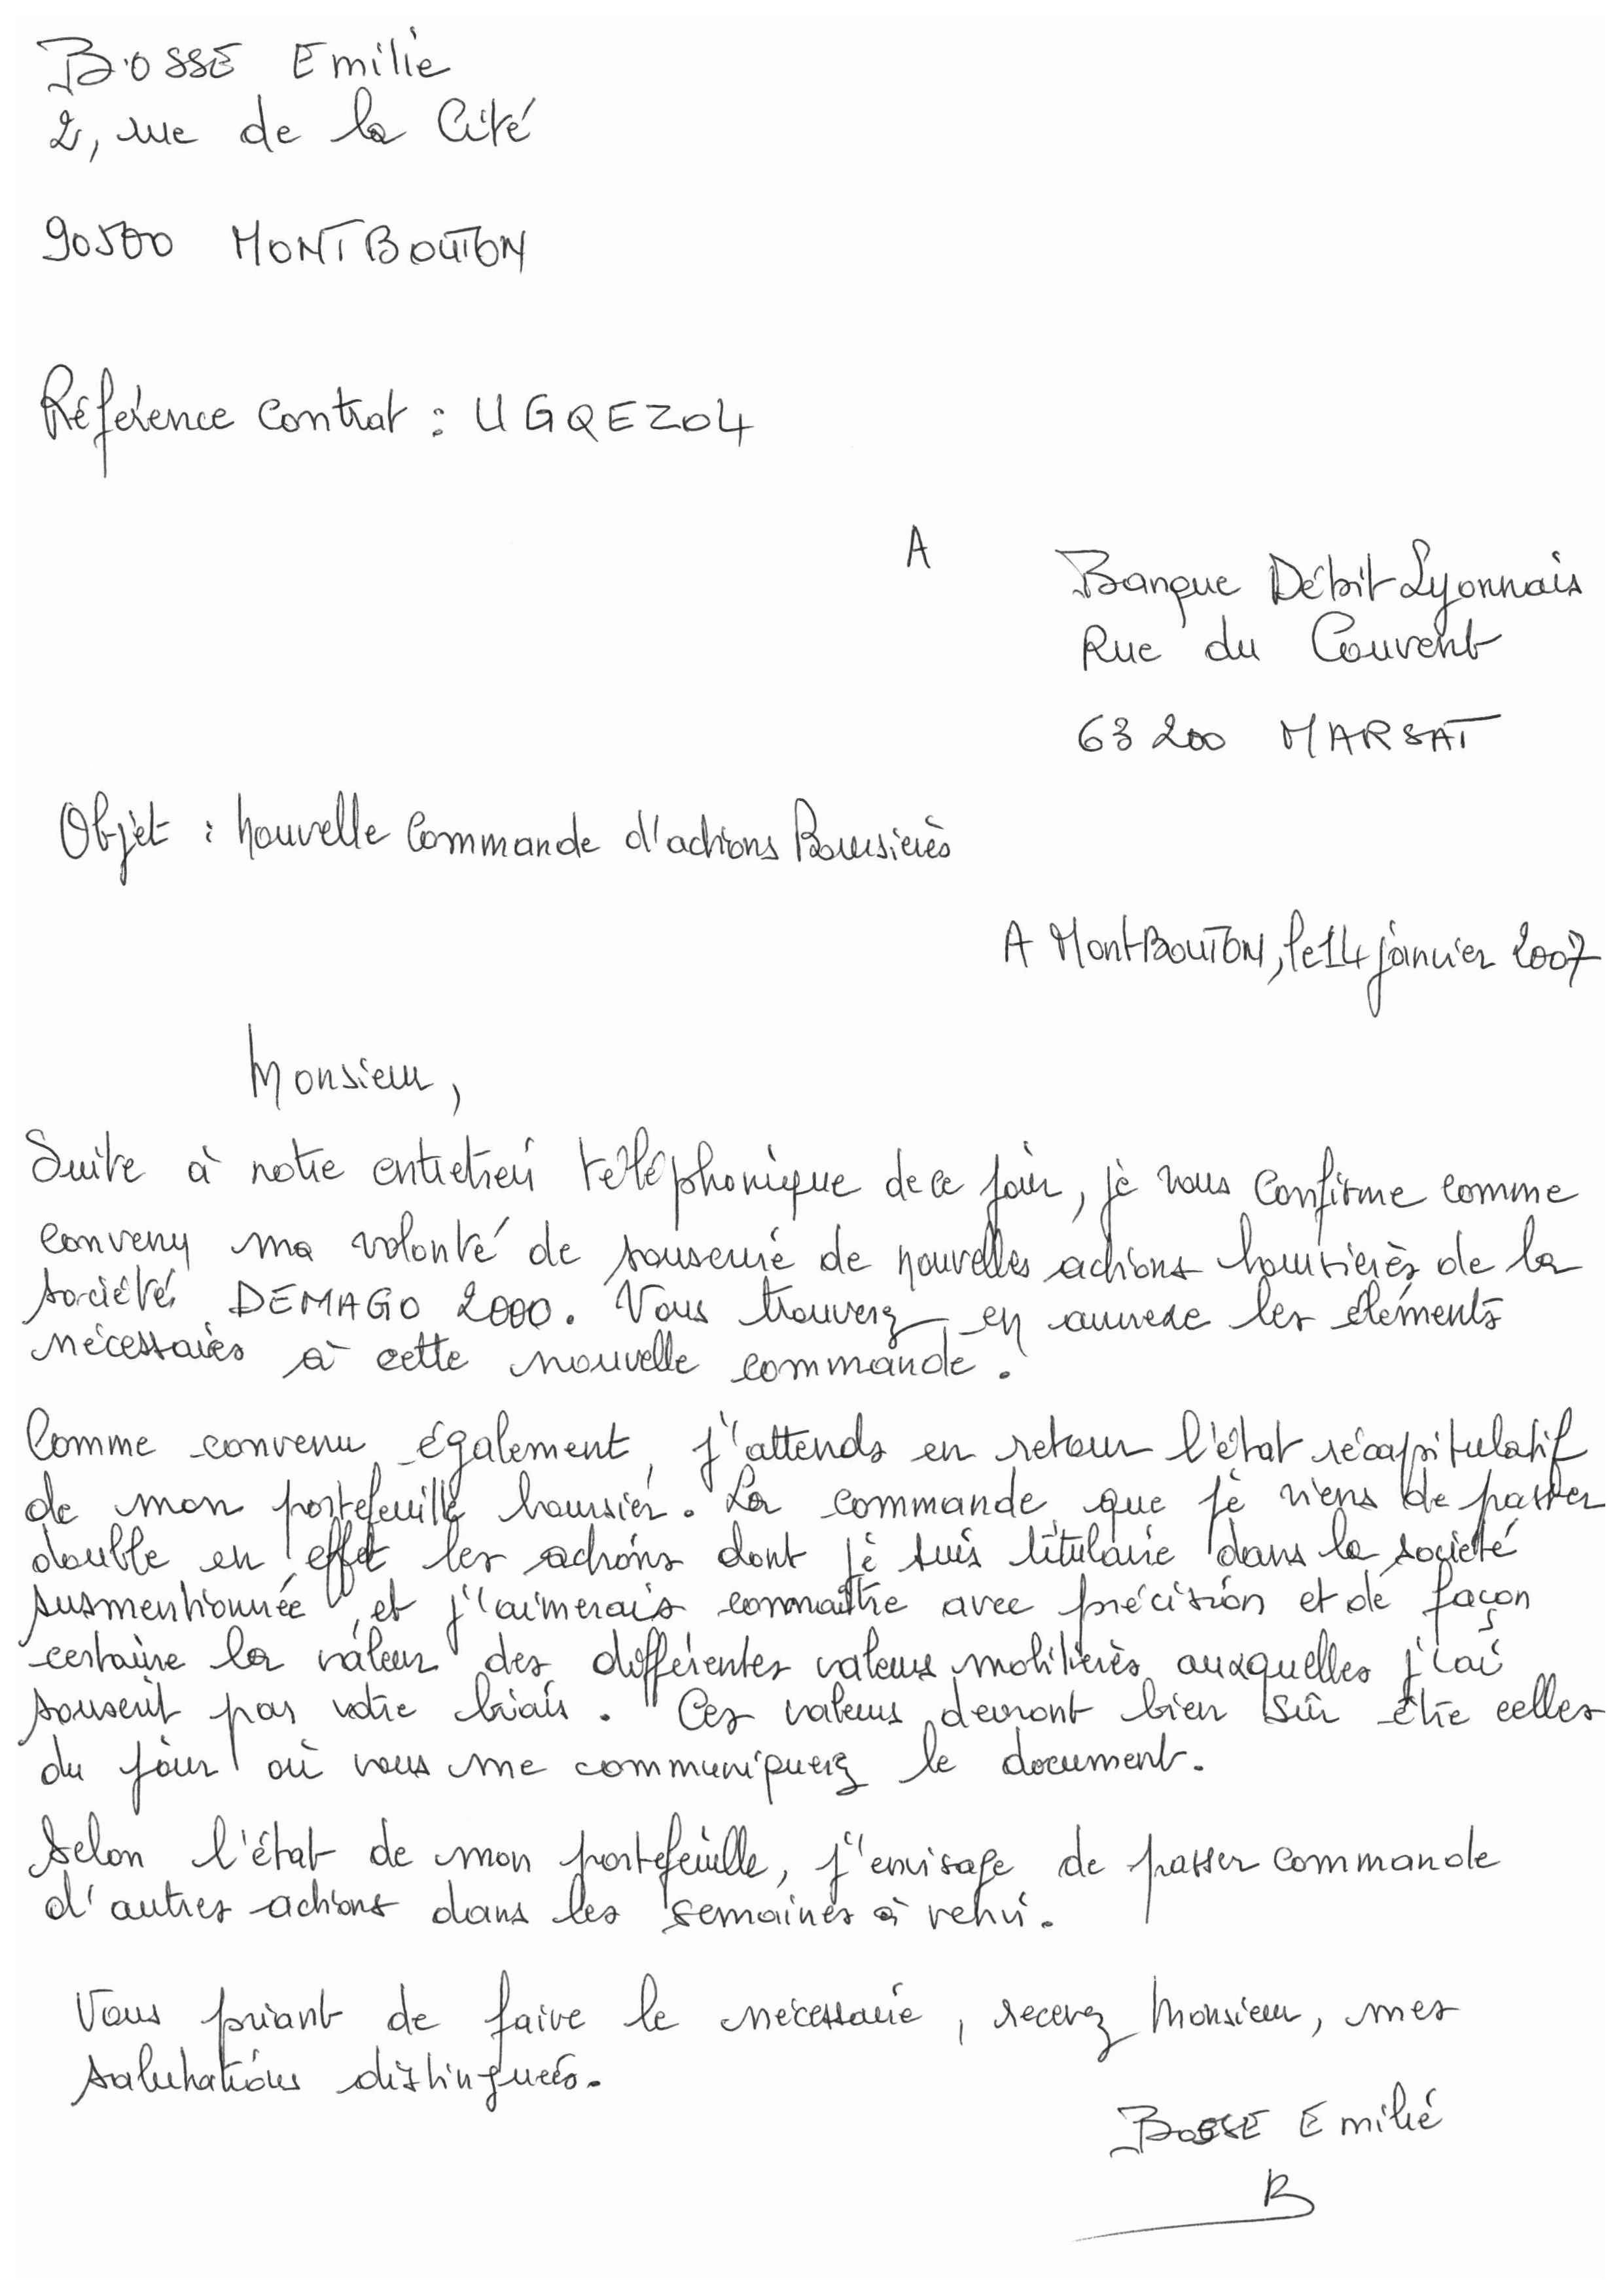 BOSSE Emilie
2, rue de la Cité
90500 MONTBOUTON
Référence contrat : UGQEZ04
A
Banque Débit Lyonnais
Rue du Couvent
63200 MARSAT
Objet : Nouvelle Commande d'actions Boursières
A MontBOUTON, le 14 janvier 2007
Monsieur,
Suite à notre entretien téléphonique de ce jour, je vous confirme comme
convenu ma volonté de souscrire de nouvelles actions boursières de la
société DEMAGO 2000. Vous trouverez en annexe les éléments
nécessaires à cette nouvelle commande.
Comme convenu également, j'attends en retour l'état récapitulatif
de mon portefeuille boursier. La commande que je viens de passer
double en effet les actions dont je suis titulaire dans la société
susmentionnée, et j'aimerais connaître avec précision et de façon
certaine la valeur des différentes valeurs mobilières auxquelles j'ai
souscrit par votre biais. Ces valeurs devront bien sûr être celles
du jour où vous me communiquerez le document.
Selon l'état de mon portefeuille, j'envisage de passer commande
d'autres actions dans les semaines à venir.
Vous priant de faire le nécessaire, recevez Monsieur, mes
salutations distinguées.
BOSSE Emilie
B